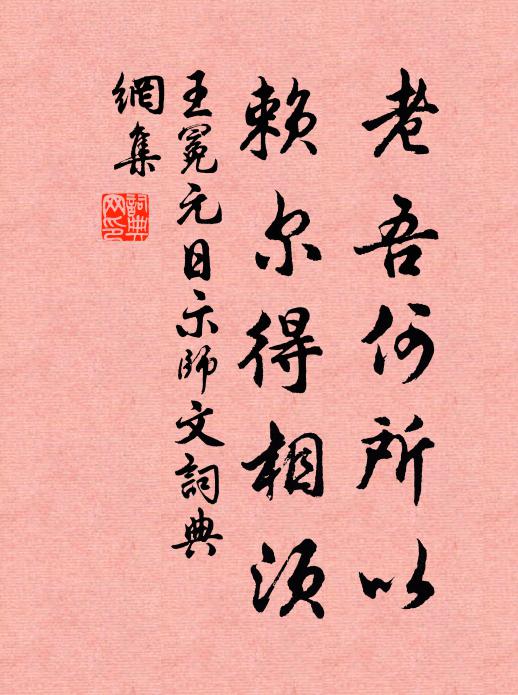 老吾何所以
赖尔得相须
王冕元日示师文词典
網集
詞典網印